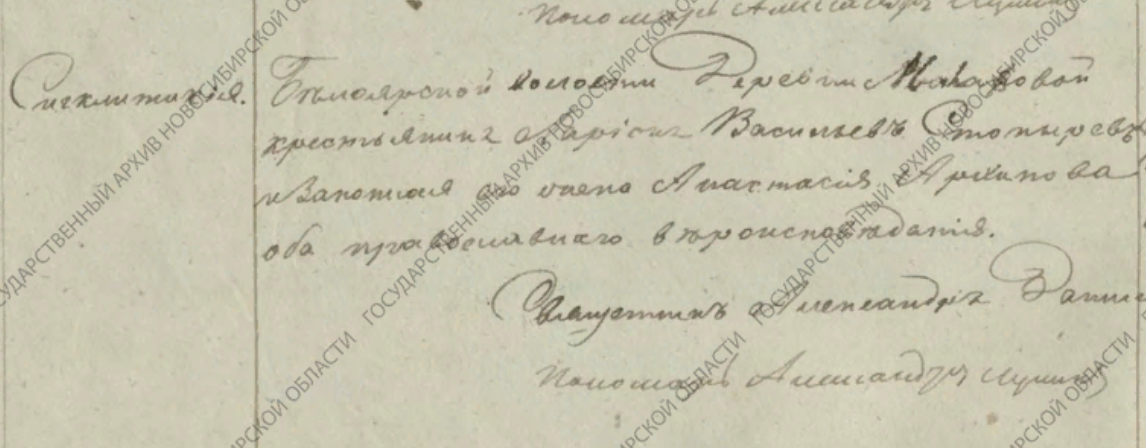 Пономарь Александръ
Сигклитикія.
Бѣлоярской волости Деревни Макаровой
крестьянинъ Василіевъ
и Законная его жена Анастасія Архипова
оба православнаго вѣроисповѣданія.
Священникъ Александръ
Пономарь Александръ
ГОСУДАРСТВЕННЫЙ АРХИВ НОВОСИБИРСКОЙ ОБЛАСТИ